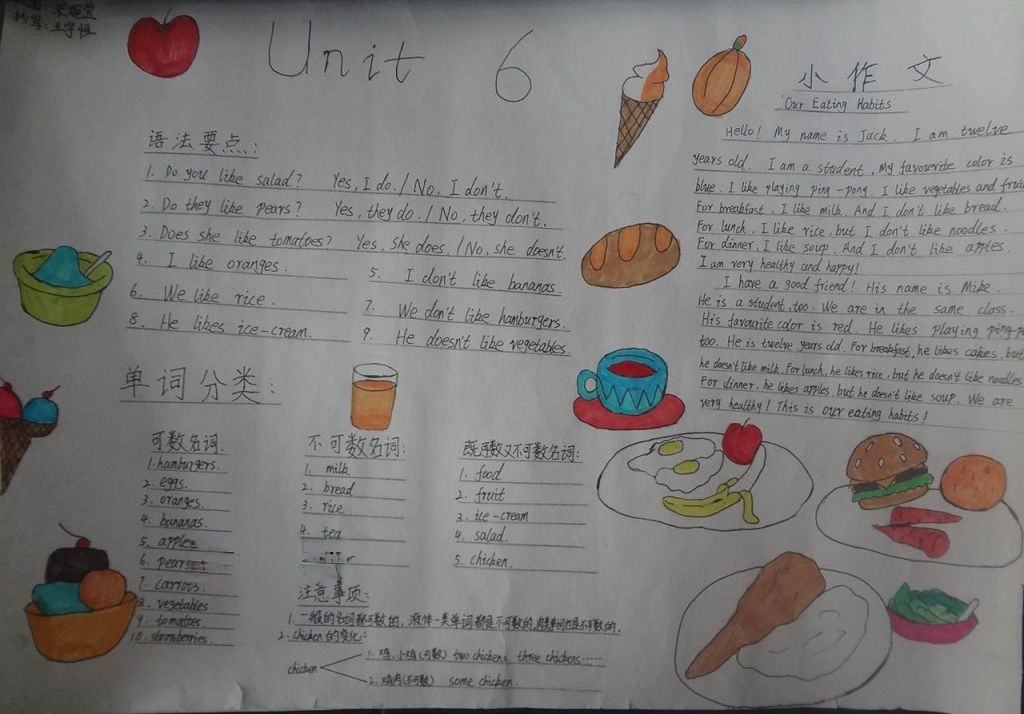 抄写：王宇恒
Unit 6
语法要点：
1. Do you like salad? Yes, I do. / No, I don't.
2. Do they like pears? Yes, they do. / No, they don't.
3. Does she like tomatoes? Yes, she does. / No, she doesn't.
4. I like oranges.
5. I don't like bananas.
6. We like rice.
7. We don't like hamburgers.
8. He likes ice-cream.
9. He doesn't like vegetables.
单词分类：
可数名词：
1. hamburgers.
2. eggs.
3. oranges.
4. bananas.
5. apples
6. pear
7. carrots.
8. vegetables
9. tomatoes.
10. strawberries.
不可数名词：
1. milk
2. bread
3. rice
4. tea
既可数又不可数名词：
1. food
2. fruit
3. ice-cream
4. salad.
5. chicken.
注意事项：
1. 一般的名词都可数的，液体一类单词都是不可数的，肉类单词也是不可数的.
2. chicken 的变化：
chicken
1. 鸡、小鸡(可数) two chickens three chickens……
2. 鸡肉(不可数) some chicken.
小作文
Our Eating Habits
Hello! My name is Jack. I am twelve
years old. I am a student. My favourite color is
blue. I like playing ping-pong. I like vegetables and fruit
For breakfast, I like milk. And I don't like bread.
For lunch, I like rice, but I don't like noodles.
For dinner, I like soup. And I don't like apples.
I am very healthy and happy!
I have a good friend! His name is Mike.
He is a student, too. We are in the same class.
His favourite color is red. He likes playing ping-p
too. He is twelve years old. For breakfast, he likes cakes, but
he doesn't like milk. For lunch, he likes rice, but he doesn't like noodles
For dinner, he likes apples, but he doesn't like soup. We are
very healthy! This is our eating habits!